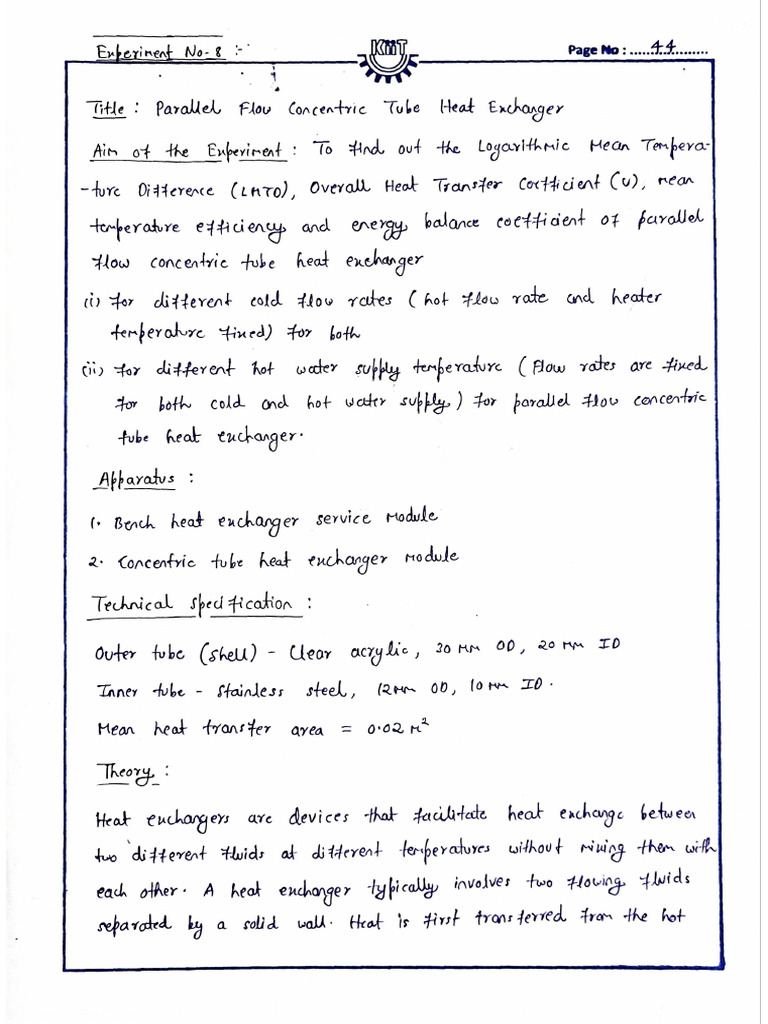 Experiment No-8 :-
KIIT
Page No : .....44........
Title : Parallel Flow Concentric Tube Heat Exchanger
Aim of the Experiment : To find out the Logarithmic Mean Tempera-
-ture Difference (LMTD), Overall Heat Transfer Coefficient (U), mean
temperature efficiency and energy balance coefficient of parallel
flow concentric tube heat exchanger
(i) for different cold flow rates ( hot flow rate and heater
temperature fixed) for both
(ii) for different hot water supply temperature ( flow rates are fixed
for both cold and hot water supply ) for parallel flow concentric
tube heat exchanger.
Apparatus :
1. Bench heat exchanger service module
2. Concentric tube heat exchanger module
Technical specification :
Outer tube (shell) - Clear acrylic, 30 mm OD, 20 mm ID
Inner tube - Stainless steel, 12mm OD, 10 mm ID.
Mean heat transfer area = 0.02 m²
Theory :
Heat exchangers are devices that facilitate heat exchange between
two different fluids at different temperatures without mixing them with
each other. A heat exchanger typically involves two flowing fluids
separated by a solid wall. Heat is first transferred from the hot